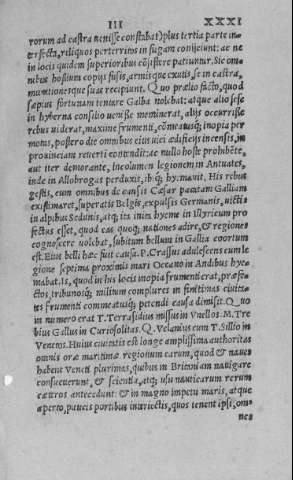 III XXXI
rorum ad castra uenisse constabat) plus tertia parte in-
terfecta, reliquos perterritos in fugam conijciunt: ac ne
in locis quidem superioribus cōsistere patiuntur. Sic om-
nibus hostium copijs fusis, armisque exutis, se in castra,
munitionesque suas recipiunt. Quo prælio facto, quod
sæpius fortunam tentare Galba nolebat: atque alio sese
in hyberna consilio uenisse meminerat, alijs occurrisse
rebus uiderat, maxime frumenti, cōmeatusq; inopia per
motus, postero die omnibus eius uici ædificijs incensis, in
prouinciam reuerti contendit: ac nullo hoste prohibēte,
aut iter demorante, incolumen legionem in Antuates,
inde in Allobrogas perduxit, ibiq; hyemauit. His rebus
gestis, cum omnibus de causis Cæsar pacatam Galliam
existimaret, superatis Belgis, expulsis Germanis, uictis
in alpibus Sedunis, atq; ita inita hyeme in Illyricum pro
fectus esset, quod eas quoq; nationes adire, & regiones
cognoscere uolebat, subitum bellum in Gallia coortum
est. Eius belli hæc fuit causa. P. Crassus adulescens cum le
gione septima proximus mari Oceano in Andibus hye-
mabat. Is, quod in his locis inopia frumenti erat, præfe-
ctos, tribunosq; militum complures in finitimas ciuita-
tes frumenti commeatusq; petendi causa dimisit. Quo
in numero erat T. Terrasidius missus in Vnellos. M. Tre
bius Gallus in Curiosolitas. Q. Velanius cum T. Sillio in
Venetos. Huius ciuitatis est longe amplissima authoritas
omnis oræ maritimæ regionum earum, quod & naues
habent Veneti plurimas, quibus in Britanniam nauigare
consueuerunt, & scientia, atq; usu nauticarum rerum
cæteros antecedunt: & in magno impetu maris, atque
aperto, paucis portibus interiectis, quos tenent ipsi, om-
nes